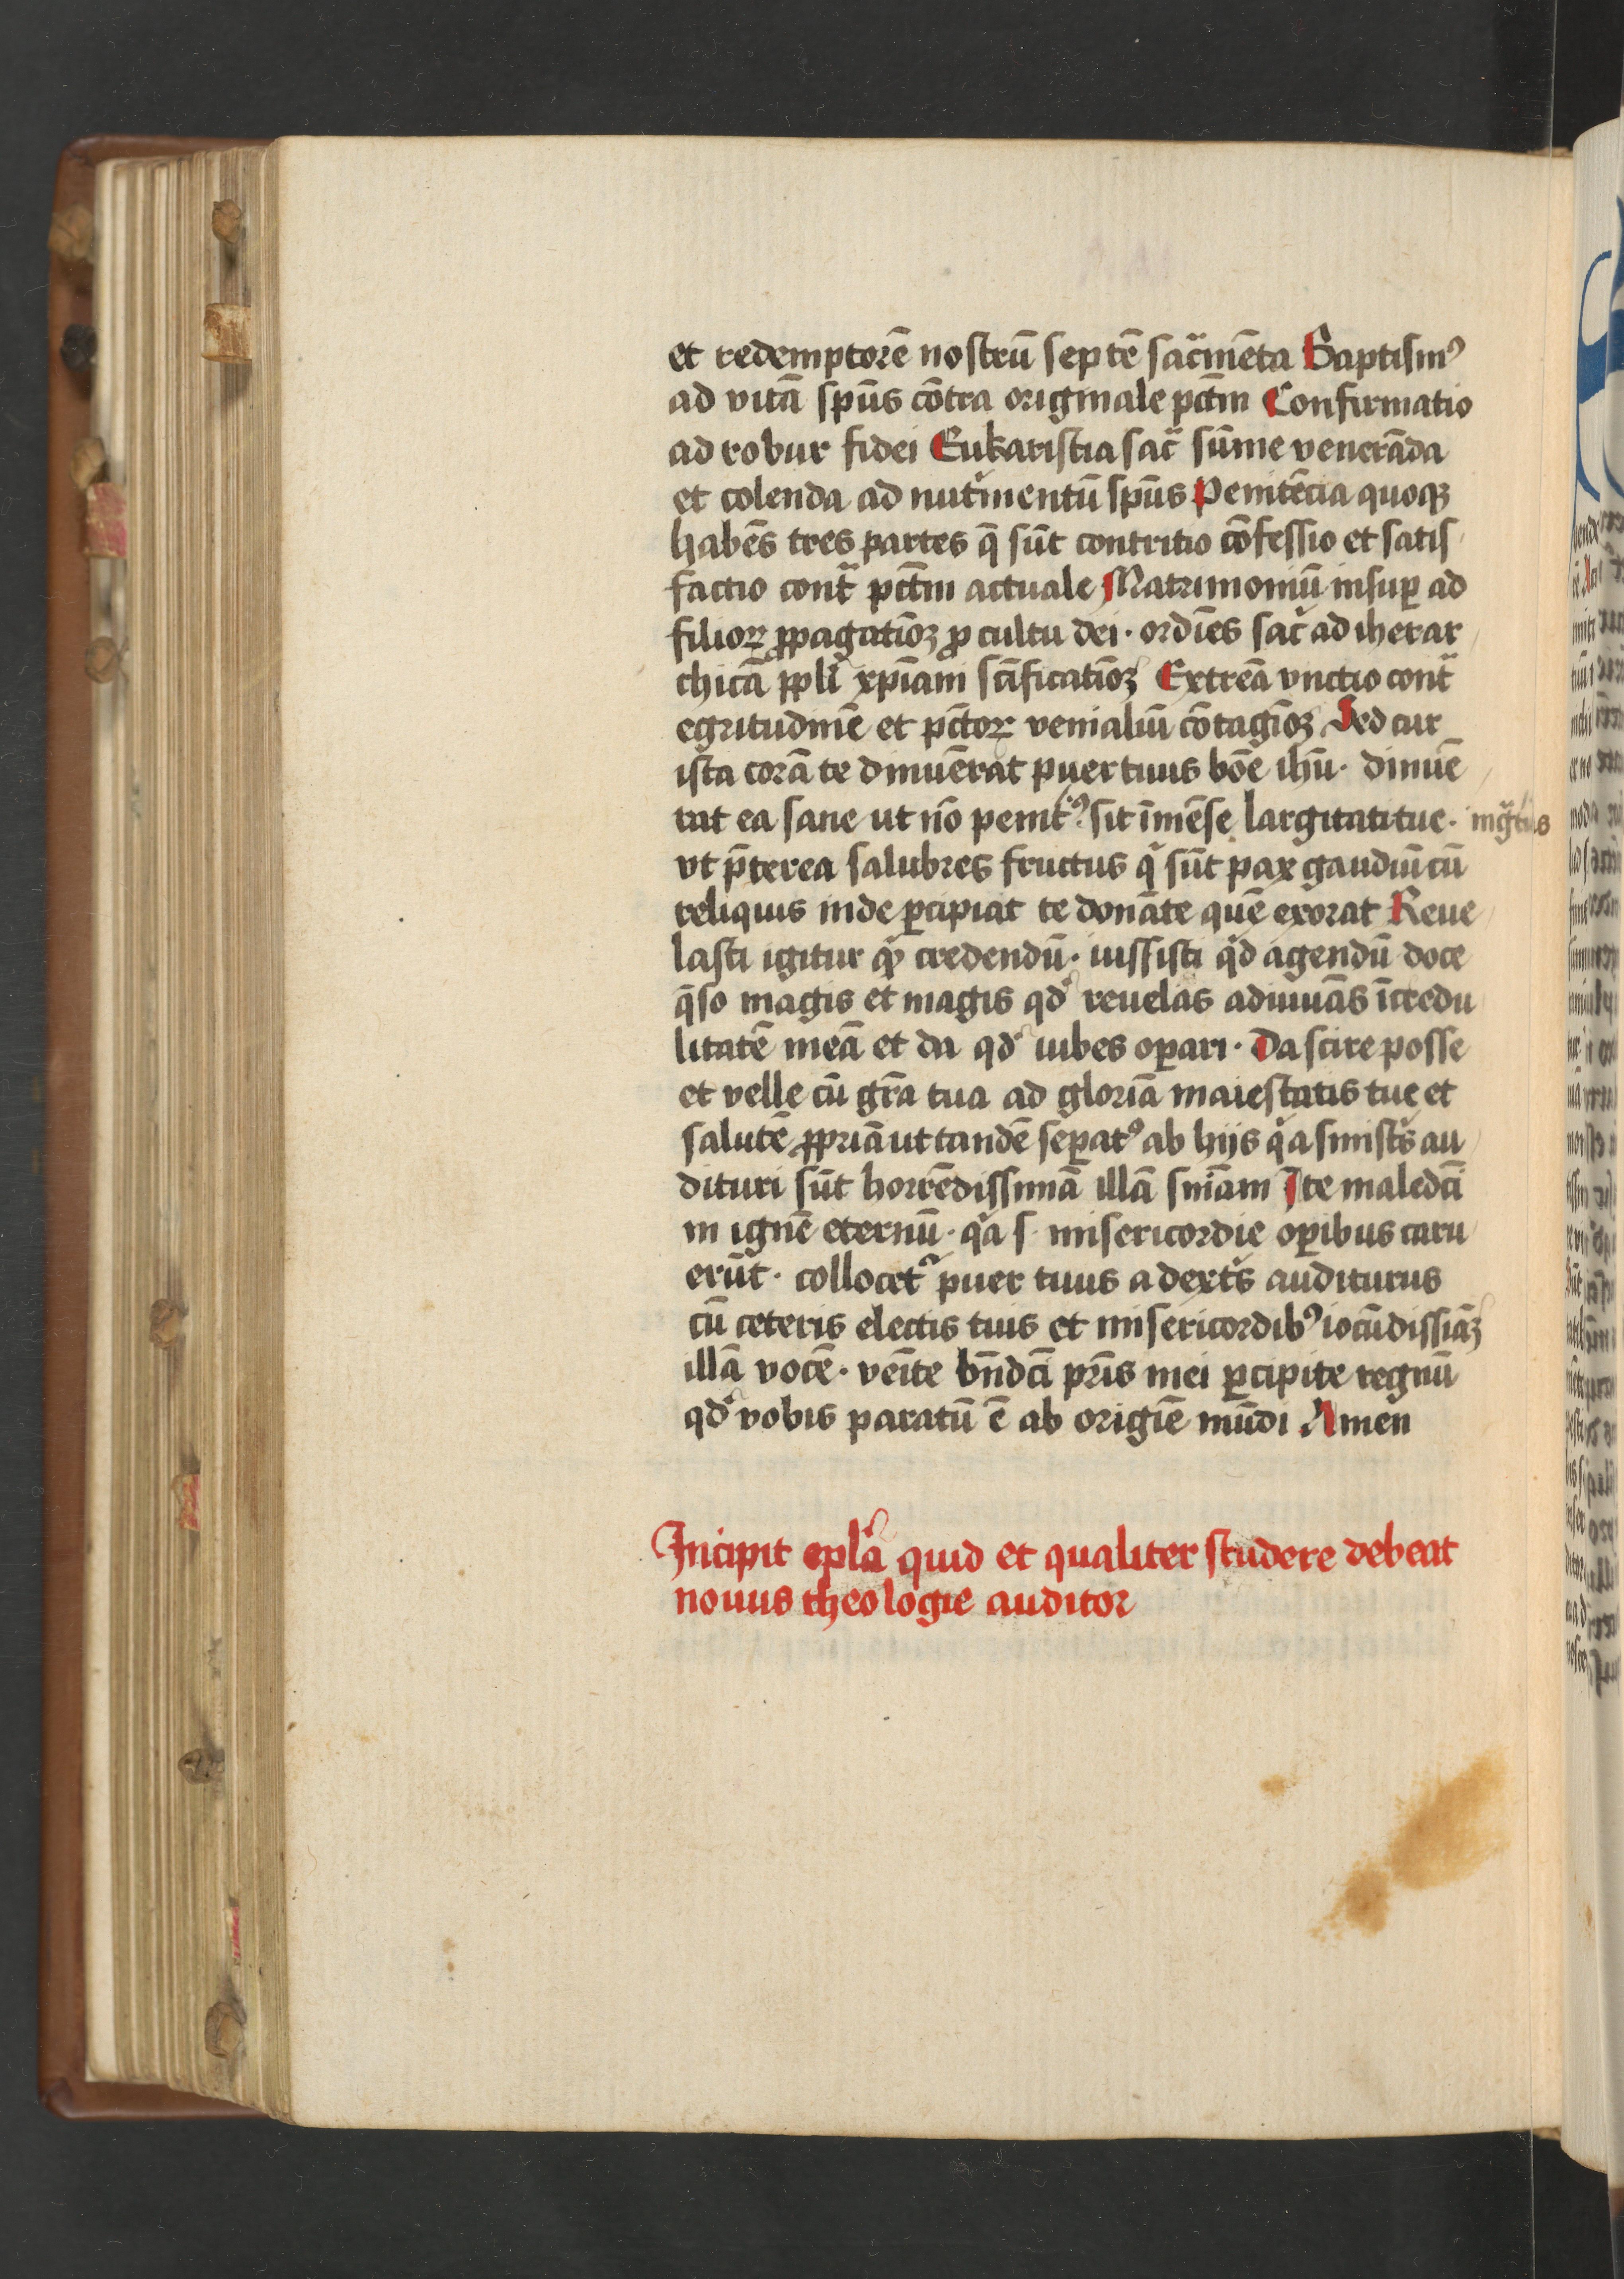 et redemptorē nostrū septē sac̄mēta Baptismꝰ
ad vitā spūs cōtra originale pctm̄ Confirmatio
ad robur fidei Eukaristia sac̄ sūme venerāda
et colenda ad nutͥmentū spūs Penitēcia quoqꝫ
habēs tres partes q̄ sūt contritio cōfessio et satis
factio contᷓ pctm̄ actuale Matrimoniū insuꝑ ad
filioꝝ ꝓpagatiōꝫ ꝓ cultu dei · ordīes sac̄ ad iherar
chicā ppli xp̄iani sc̄ificatiōꝫ Extrēa vnctio contᷓ
egritudinē et pc̄toꝝ venialiū cōtagiōꝫ Sed cur
ista corā te dinuērat puer tuus bōe ihū · dinuē
rat ea sane ut nō penitꝰ sit īmēse largitati tue · ingᷓtus
vt p̄terea salubres fructus qͥ sūt pax gaudiū cū
reliquis inde ꝑcipiat te donāte quē exorat Reue
lasti igitur qͩ credendū · iussisti qͩ agendū doce
q̄so magis et magis qd' reuelas adiuuās īcredu
litatē meā et da qd' iubes oꝑari · Da scire posse
et velle cū grā tua ad gloriā maiestatis tue et
salutē ꝓpriā ut tandē seꝑatꝰ ab hijs qͥ a sinistͥs au
dituri sūt horrēdissimā illā sniāam Ite maledcī
in ignē eternū · qͥa s· misericordie oꝑibus caru
erūt · collocetᷣ puer tuus a dextͥs auditurus
cū ceteris electis tuis et misericordibꝰ iocūdissiāꝫ
illā vocē · venīte bn̄dcī pr̄is mei ꝑcipite regnū
qd' vobis paratū ē ab origīe mūdi Amen
Incipit epl̄a quid et qualiter studere debeat
nouus theologie auditor